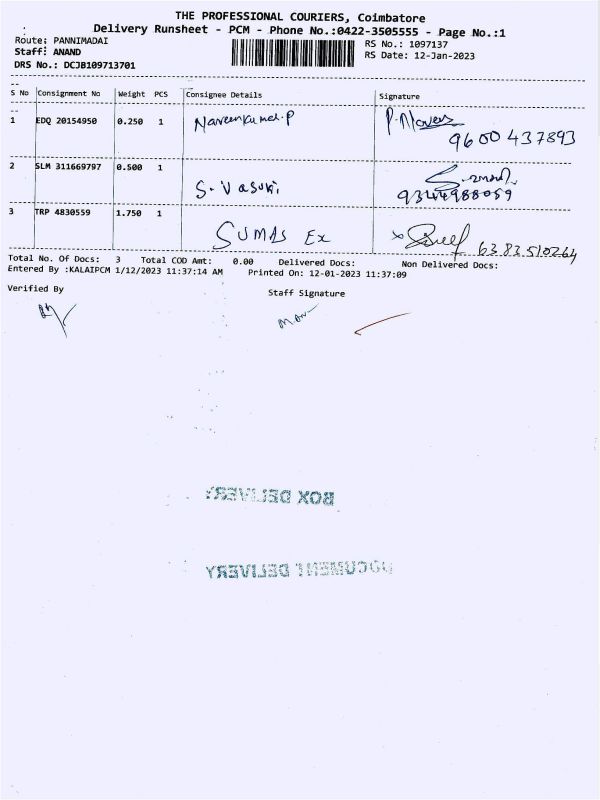 THE PROFESSIONAL COURIERS, Coimbatore
Delivery Runsheet - PCM - Phone No.:0422-3505555 - Page No.:1
Route: PANNIMADAI
RS No.: 1097137
Staff: ANAND
RS Date: 12-Jan-2023
DRS No.: DCJB109713701
S No Consignment No Weight PCS Consignee Details Signature
1 EDQ 20154950 0.250 1 Naveenkumar.P
9600437893
2 SLM 311669797 0.500 1 S. Vasuki
9344988059
3 TRP 4830559 1.750 1 SUMAS Ex
6383510264
Total No. Of Docs: 3 Total COD Amt: 0.00 Delivered Docs: Non Delivered Docs:
Entered By :KALAIPCM 1/12/2023 11:37:14 AM Printed On: 12-01-2023 11:37:09
Verified By
Staff Signature
BOX DELIVERY
DOCUMENT DELIVERY